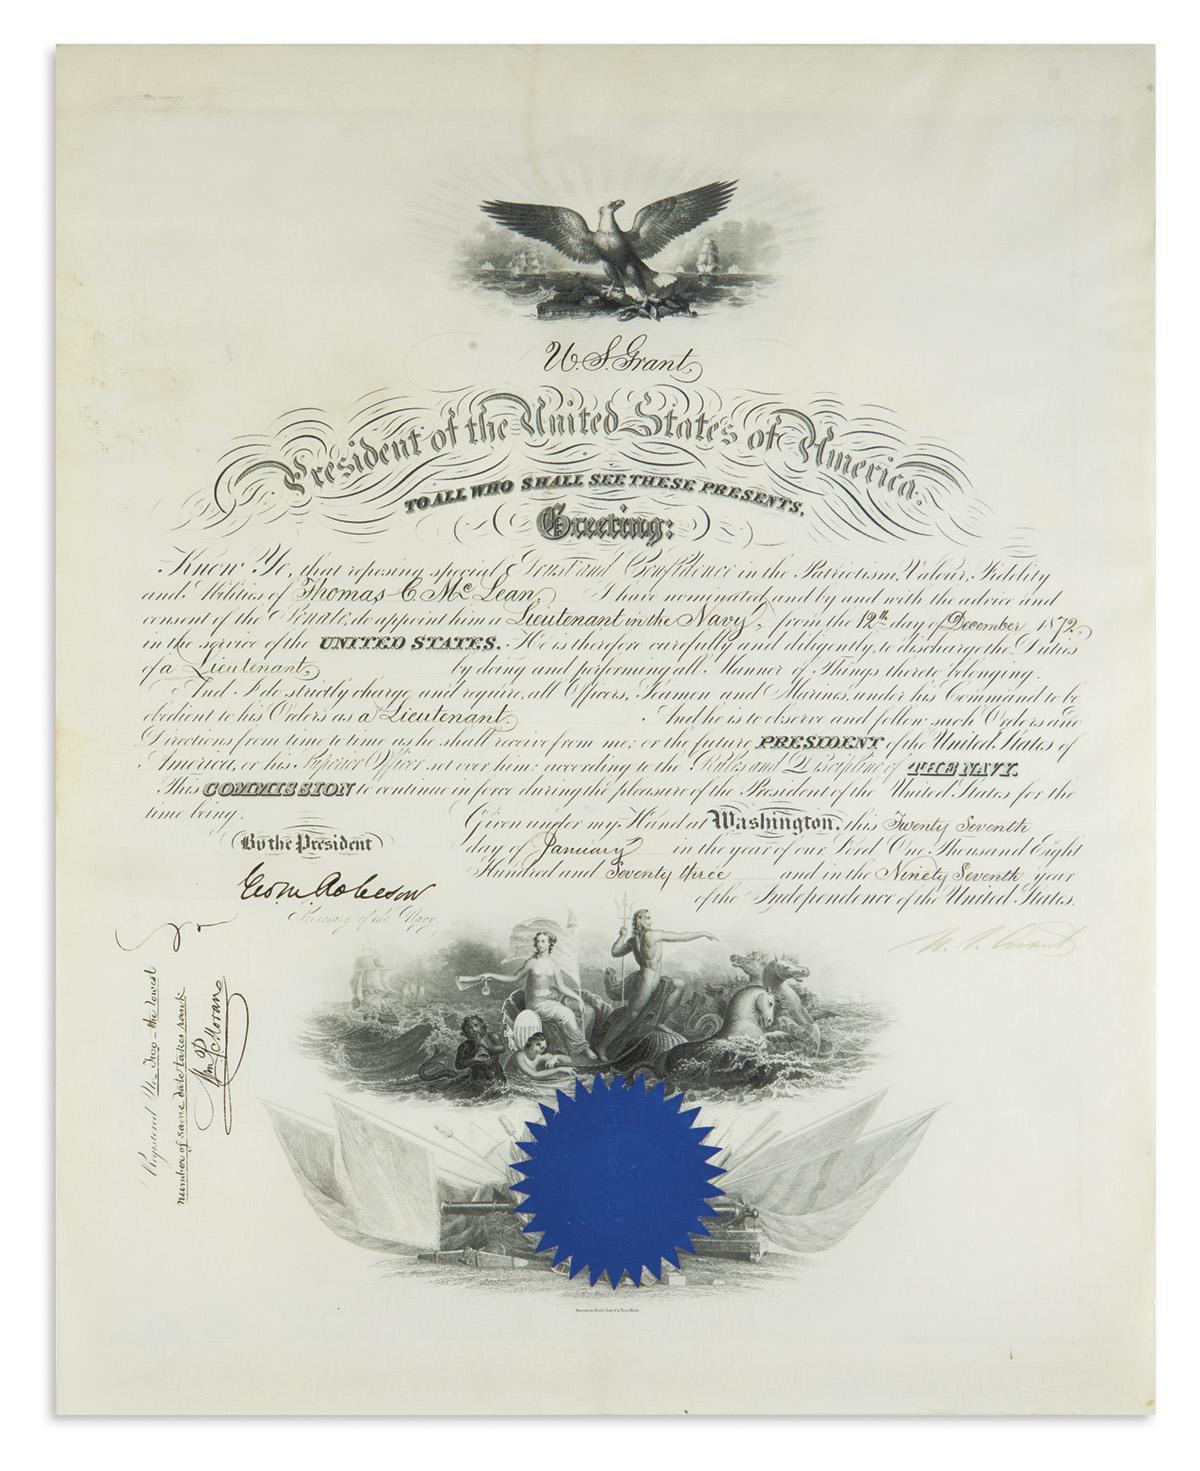 U. S. Grant,
President of the United States of America.
TO ALL WHO SHALL SEE THESE PRESENTS,
Greeting:
Know Ye, that reposing special Trust and Confidence in the Patriotism, Valour, Fidelity
and Abilities of Thomas C. McLean, I have nominated and by and with the advice and
consent of the Senate, do appoint him a Lieutenant in the Navy, from the 12th day of December 1872,
in the service of the UNITED STATES. He is therefore carefully and diligently, to discharge the Duties
of a Lieutenant, by doing and performing all Manner of Things thereto belonging.
And I do strictly charge and require, all Officers, Seamen and Marines, under his Command to be
obedient to his Orders as a Lieutenant. And he is to observe and follow such Orders and
Directions from time to time as he shall receive from me; or the future PRESIDENT of the United States of
America, or his Superior Officer set over him; according to the Rules and Discipline of THE NAVY.
This COMMISSION to continue in force during the pleasure of the President of the United States for the
time being.
Given under my Hand at Washington, this Twenty Seventh
day of January in the year of our Lord One Thousand Eight
Hundred and Seventy three and in the Ninety Seventh year
of the Independence of the United States.
By the President
Geo M Robeson
Secretary of the Navy.
U. S. Grant
Registered No Two – the lowest
number of same date takes rank
Wm P. Moran
American Bank Note Co. New York